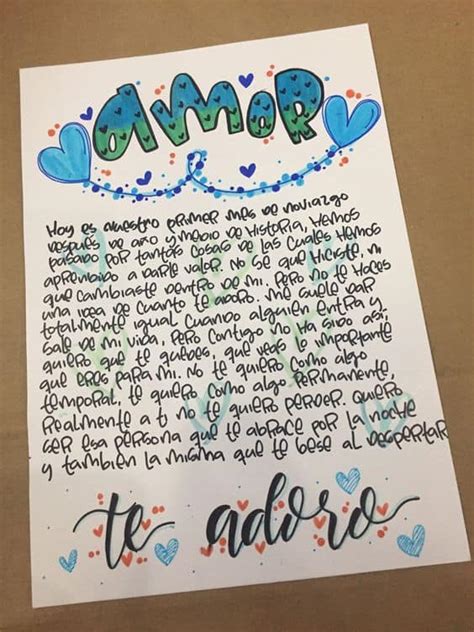 AMOR
Hoy es nuestro primer mes de noviazgo
después de año y medio de historia, Hemos
pasado por tantas cosas de las cuales Hemos
aprendido a darle valor. No sé que Hiciste, ni
que cambiaste dentro de mi, pero no te Haces
una idea de cuanto te adoro. Me suele dar
totalmente igual cuando alguien entra y
sale de mi vida, pero contigo no ha sido así,
quiero que te quedes, que veas lo importante
que eres para mi. No te quiero como algo
temporal, te quiero como algo permanente,
realmente a ti no te quiero perder. Quiero
ser esa persona que te abrace por la noche
y también la misma que te bese al despertar
te adoro